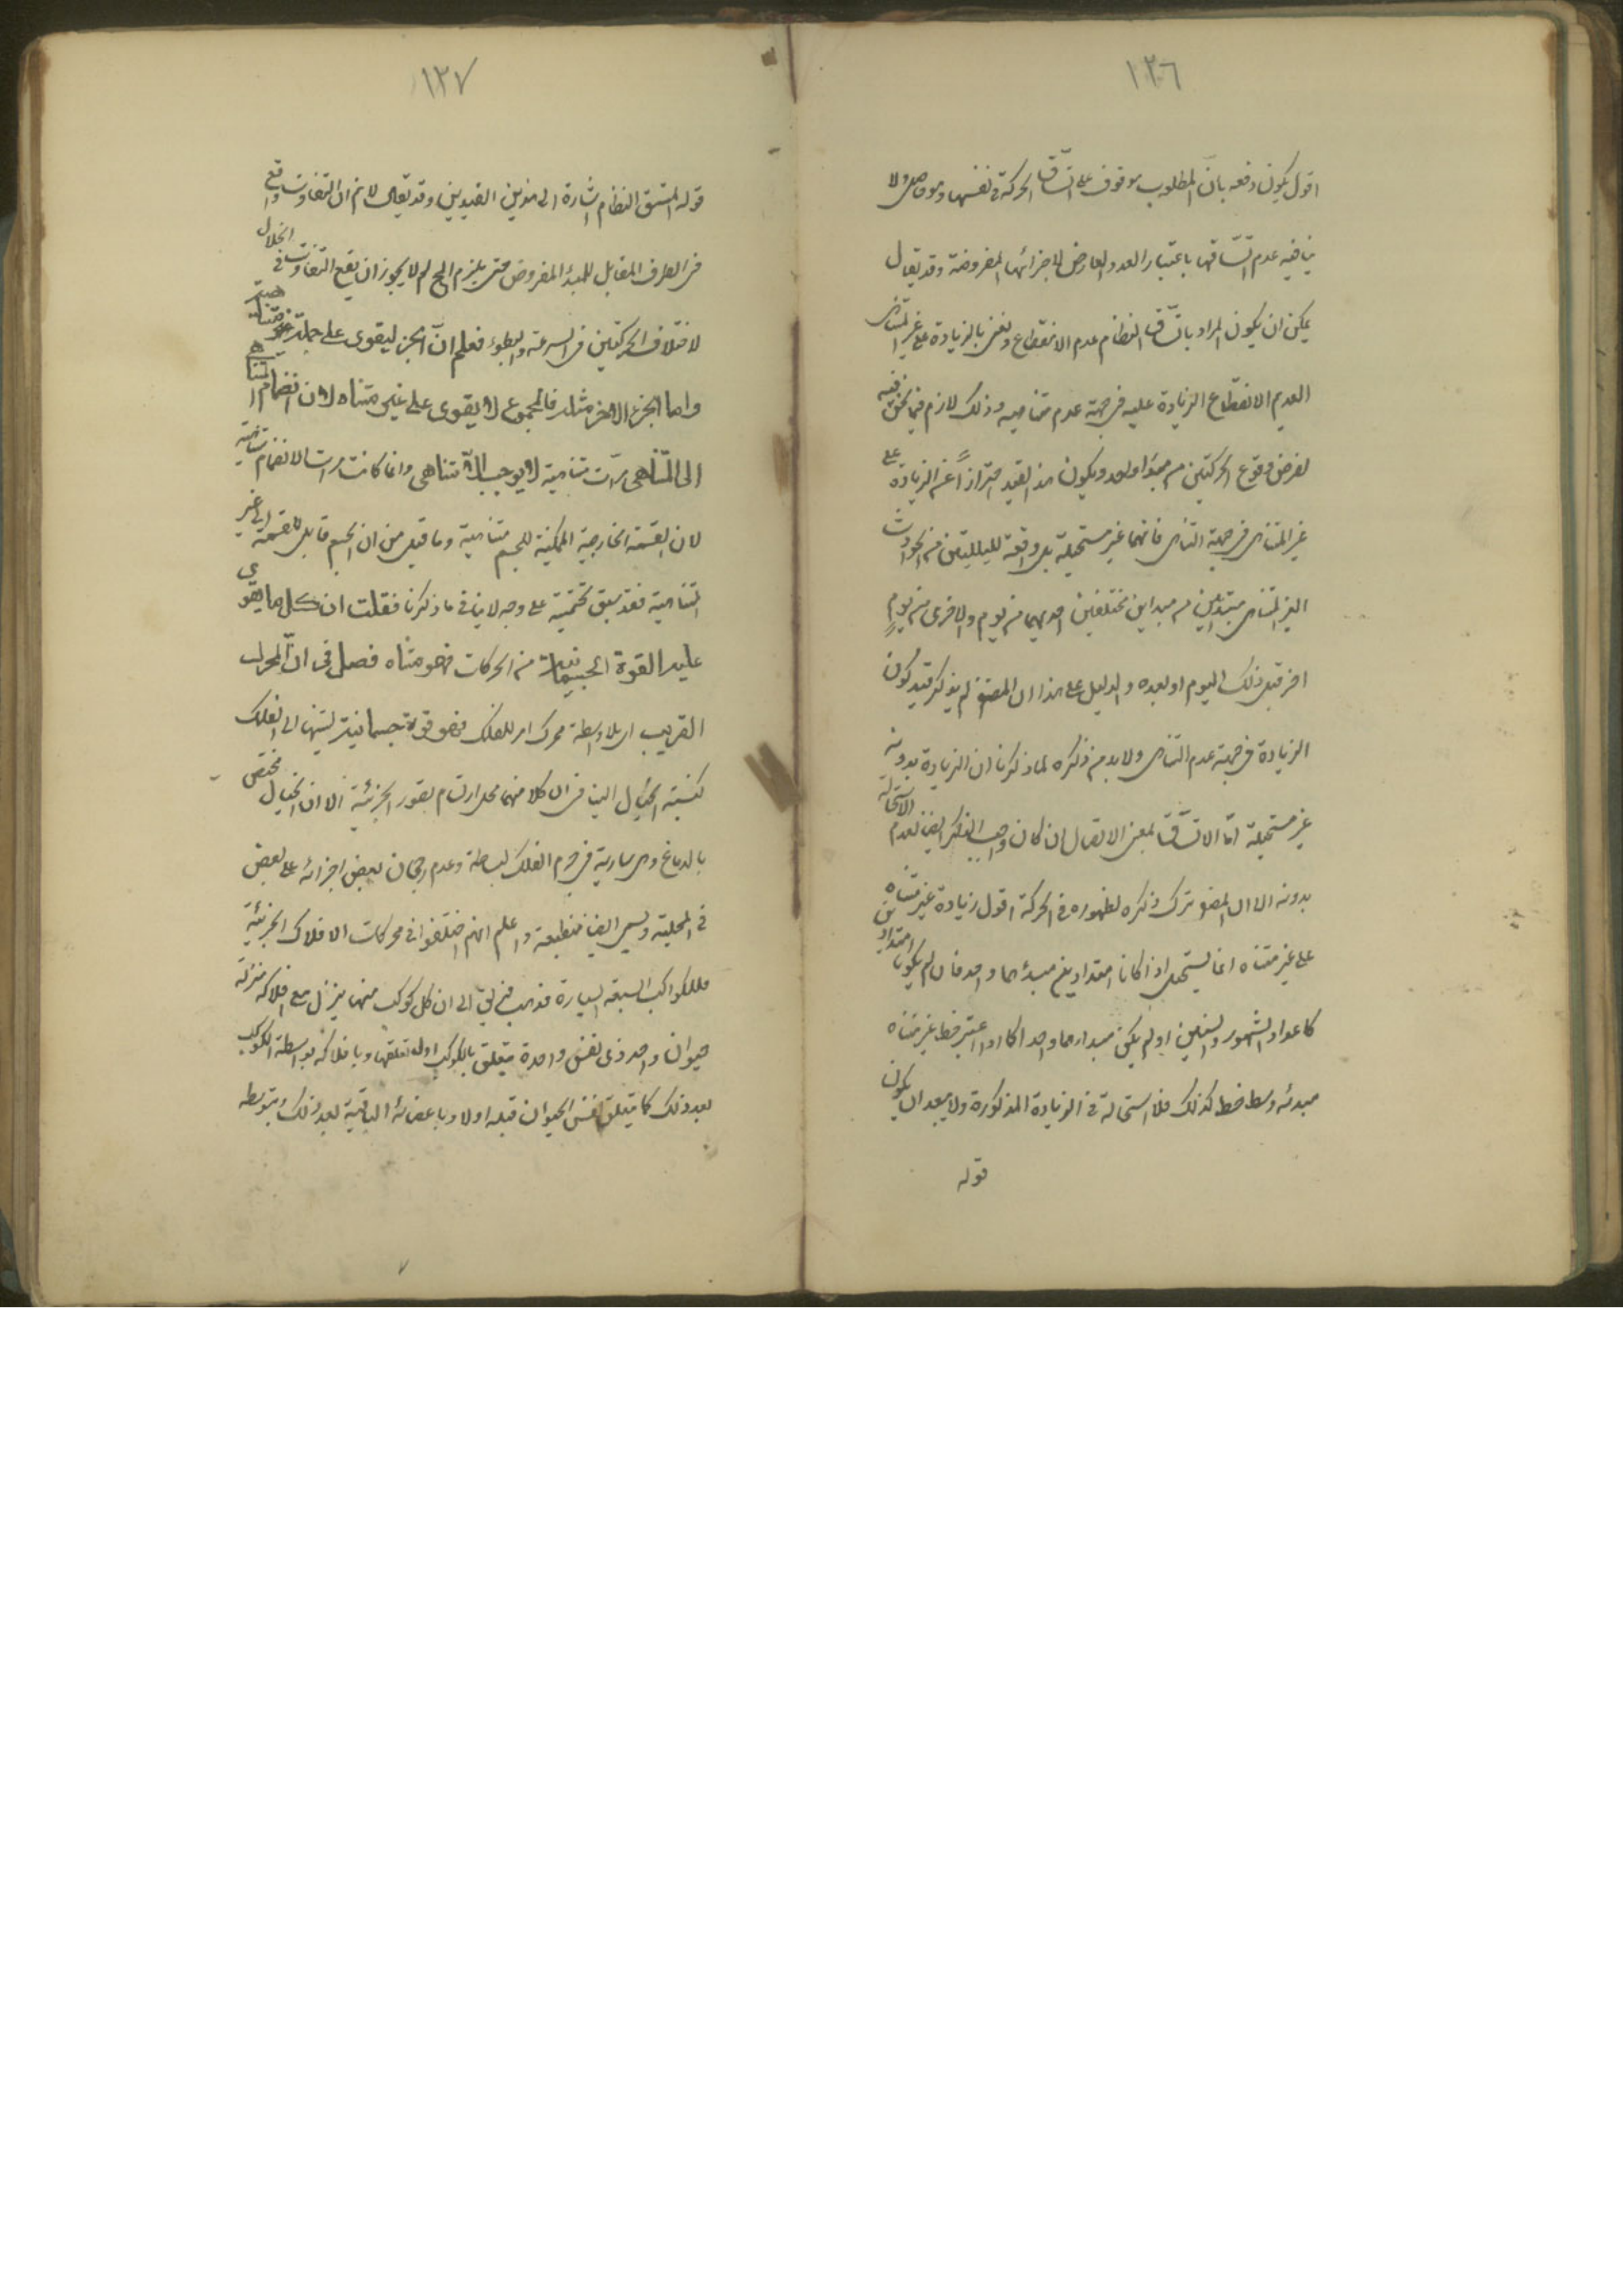 ١٢٦
اقول يكون دفعه بان المطلوب موقوف على اتساق الحركة فى نفسها وهو حاصل ولا
ينافيه عدم اتساقها باعتبار العدد العارض لاجزائها المفروضة وقد يقال
يمكن ان يكون المراد باتساق النظام عدم الانقطاع ونعنى بالزيادة على غير المتناهى
العديم الانقطاع الزيادة عليه فى جهة عدم تناهيه وذلك لازم فيما نحن فيه
لفرض وقوع الحركتين من مبدأ واحد ويكون هذا القيد احترازاً عن الزيادة على
غير المتناهى فى جهة التناهى فانها غير مستحيلة بل واقعة للسلسلتين من الحوادث
الغير المتناهى مبتدئين من مبداين مختلفين احديهما من يوم والاخرى من يومٍ
اخر قبل ذلك اليوم او بعده والدليل على هذا ان المصنف لم يذكر قيد كون
الزيادة فى جهة عدم التناهى ولا بد من ذكره لما ذكرنا ان الزيادة بدونه
غير مستحيلة امّا الاتساق بمعنى الاتصال ان كان واجب الذكر ايضا لعدم الاستحالة
بدونه الا ان المصنف ترك ذكره لظهوره فى الحركة اقول زيادة غير متناه
على غير متناه انما يستحيل اذا كانا امتدادين مبدؤهما واحد فان لم يكونا امتدادين
كاعداد الشهور والسنين او لم يكن مبدأهما واحدا كما اذا اعتبر خط غير متناه
مبدئه وسط خط كذلك فلا استحالة فى الزيادة المذكورة ولا يبعد ان يكون
قوله
١٢٧
قوله المتسق النظام اشارة الى هذين القيدين وقد يقال لا نم ان التفاوت واقع
فى الطرف المقابل للمبدأ المفروض حتى يلزم المح لم لا يجوز ان يقع التفاوت فى الخلال
لاختلاف الحركتين فى السرعة والبطوء فعلم انّ الجزء يقوى على جملة متناهية
واما الجزء الاخر مثله فالمجموع لا يقوى على غير متناه لان انضمام المتناهى
الى المتناهى مرّات متناهية لا يوجب اللا تناهى وانما كانت مرات الانضمام متناهية
لان القسمة الخارجية الممكنة للجسم متناهية وما قيل من ان الجسم قابل للقسمة الى غير
المتناهية فقد سبق تحقيقه على وجه لا ينافى ما ذكرنا فقلت ان كل ما يقوى
عليه القوة الجسمانية من الحركات فهو متناه فصل فى ان المحرك
القريب اى بلا واسطة محرك اخر للفلك فهو قوة جسمانية نسبتها الى الفلك
كنسبة الخيال الينا فى ان كلا منهما محل ارتسام الصور الجزئية الا ان الخيال مختص
بالدماغ وهى سارية فى جرم الفلك لبساطته وعدم رجحان بعض اجزائه على بعض
فى المحلية وتسمى نفسا منطبعة واعلم انهم اختلفوا فى محركات الافلاك الجزئية
فللكواكب السبعة السيارة فذهب فريق الى ان كل كوكب منها ينزل مع افلاكه منزلة
حيوان واحد ذى نفس واحدة يتعلق بالكوكب اول تعلقها وبافلاكه بواسطة الكوكب
بعد ذلك كما يتعلق نفس الحيوان بقلبه اولا وباعضائه الباقية بعد ذلك وبتوسطه